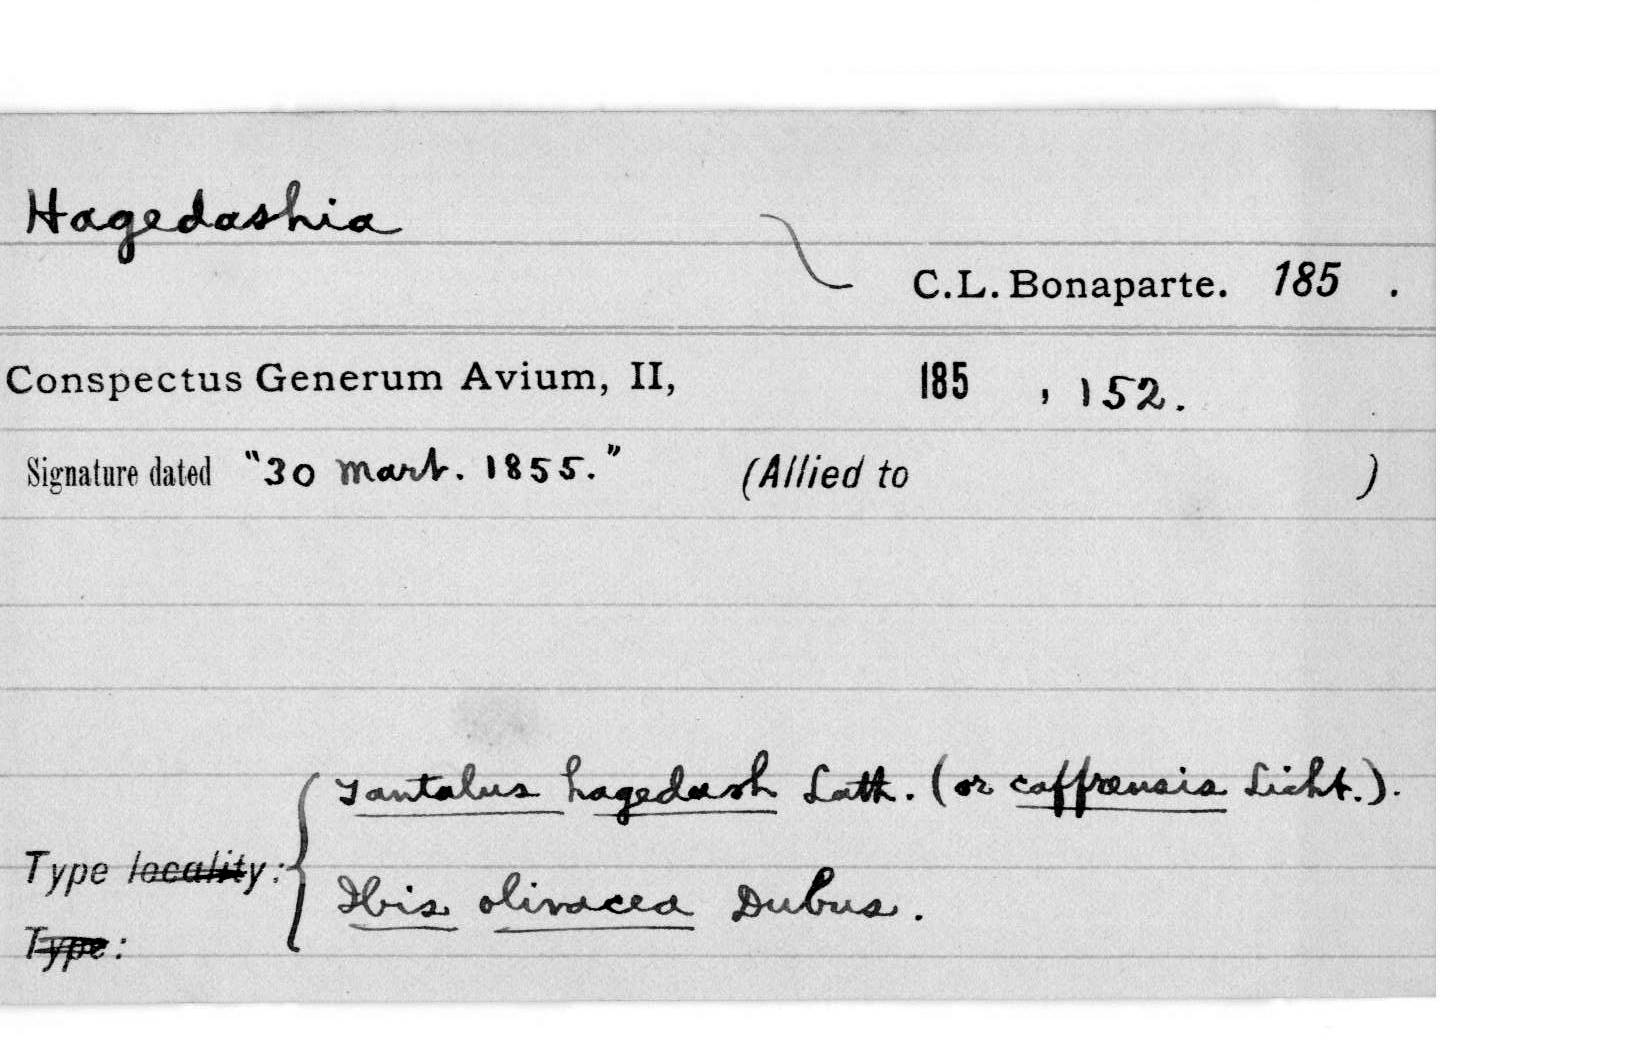 Hagedashia
C.L. Bonaparte. 185 .
Conspectus Generum Avium, II, 185 , 152.
Signature dated "30 Mart. 1855." (Allied to )
Tantalus hagedash Lath. (or caffrensis Licht.).
Type locality:
Ibis olivacea Dubus.
Type: